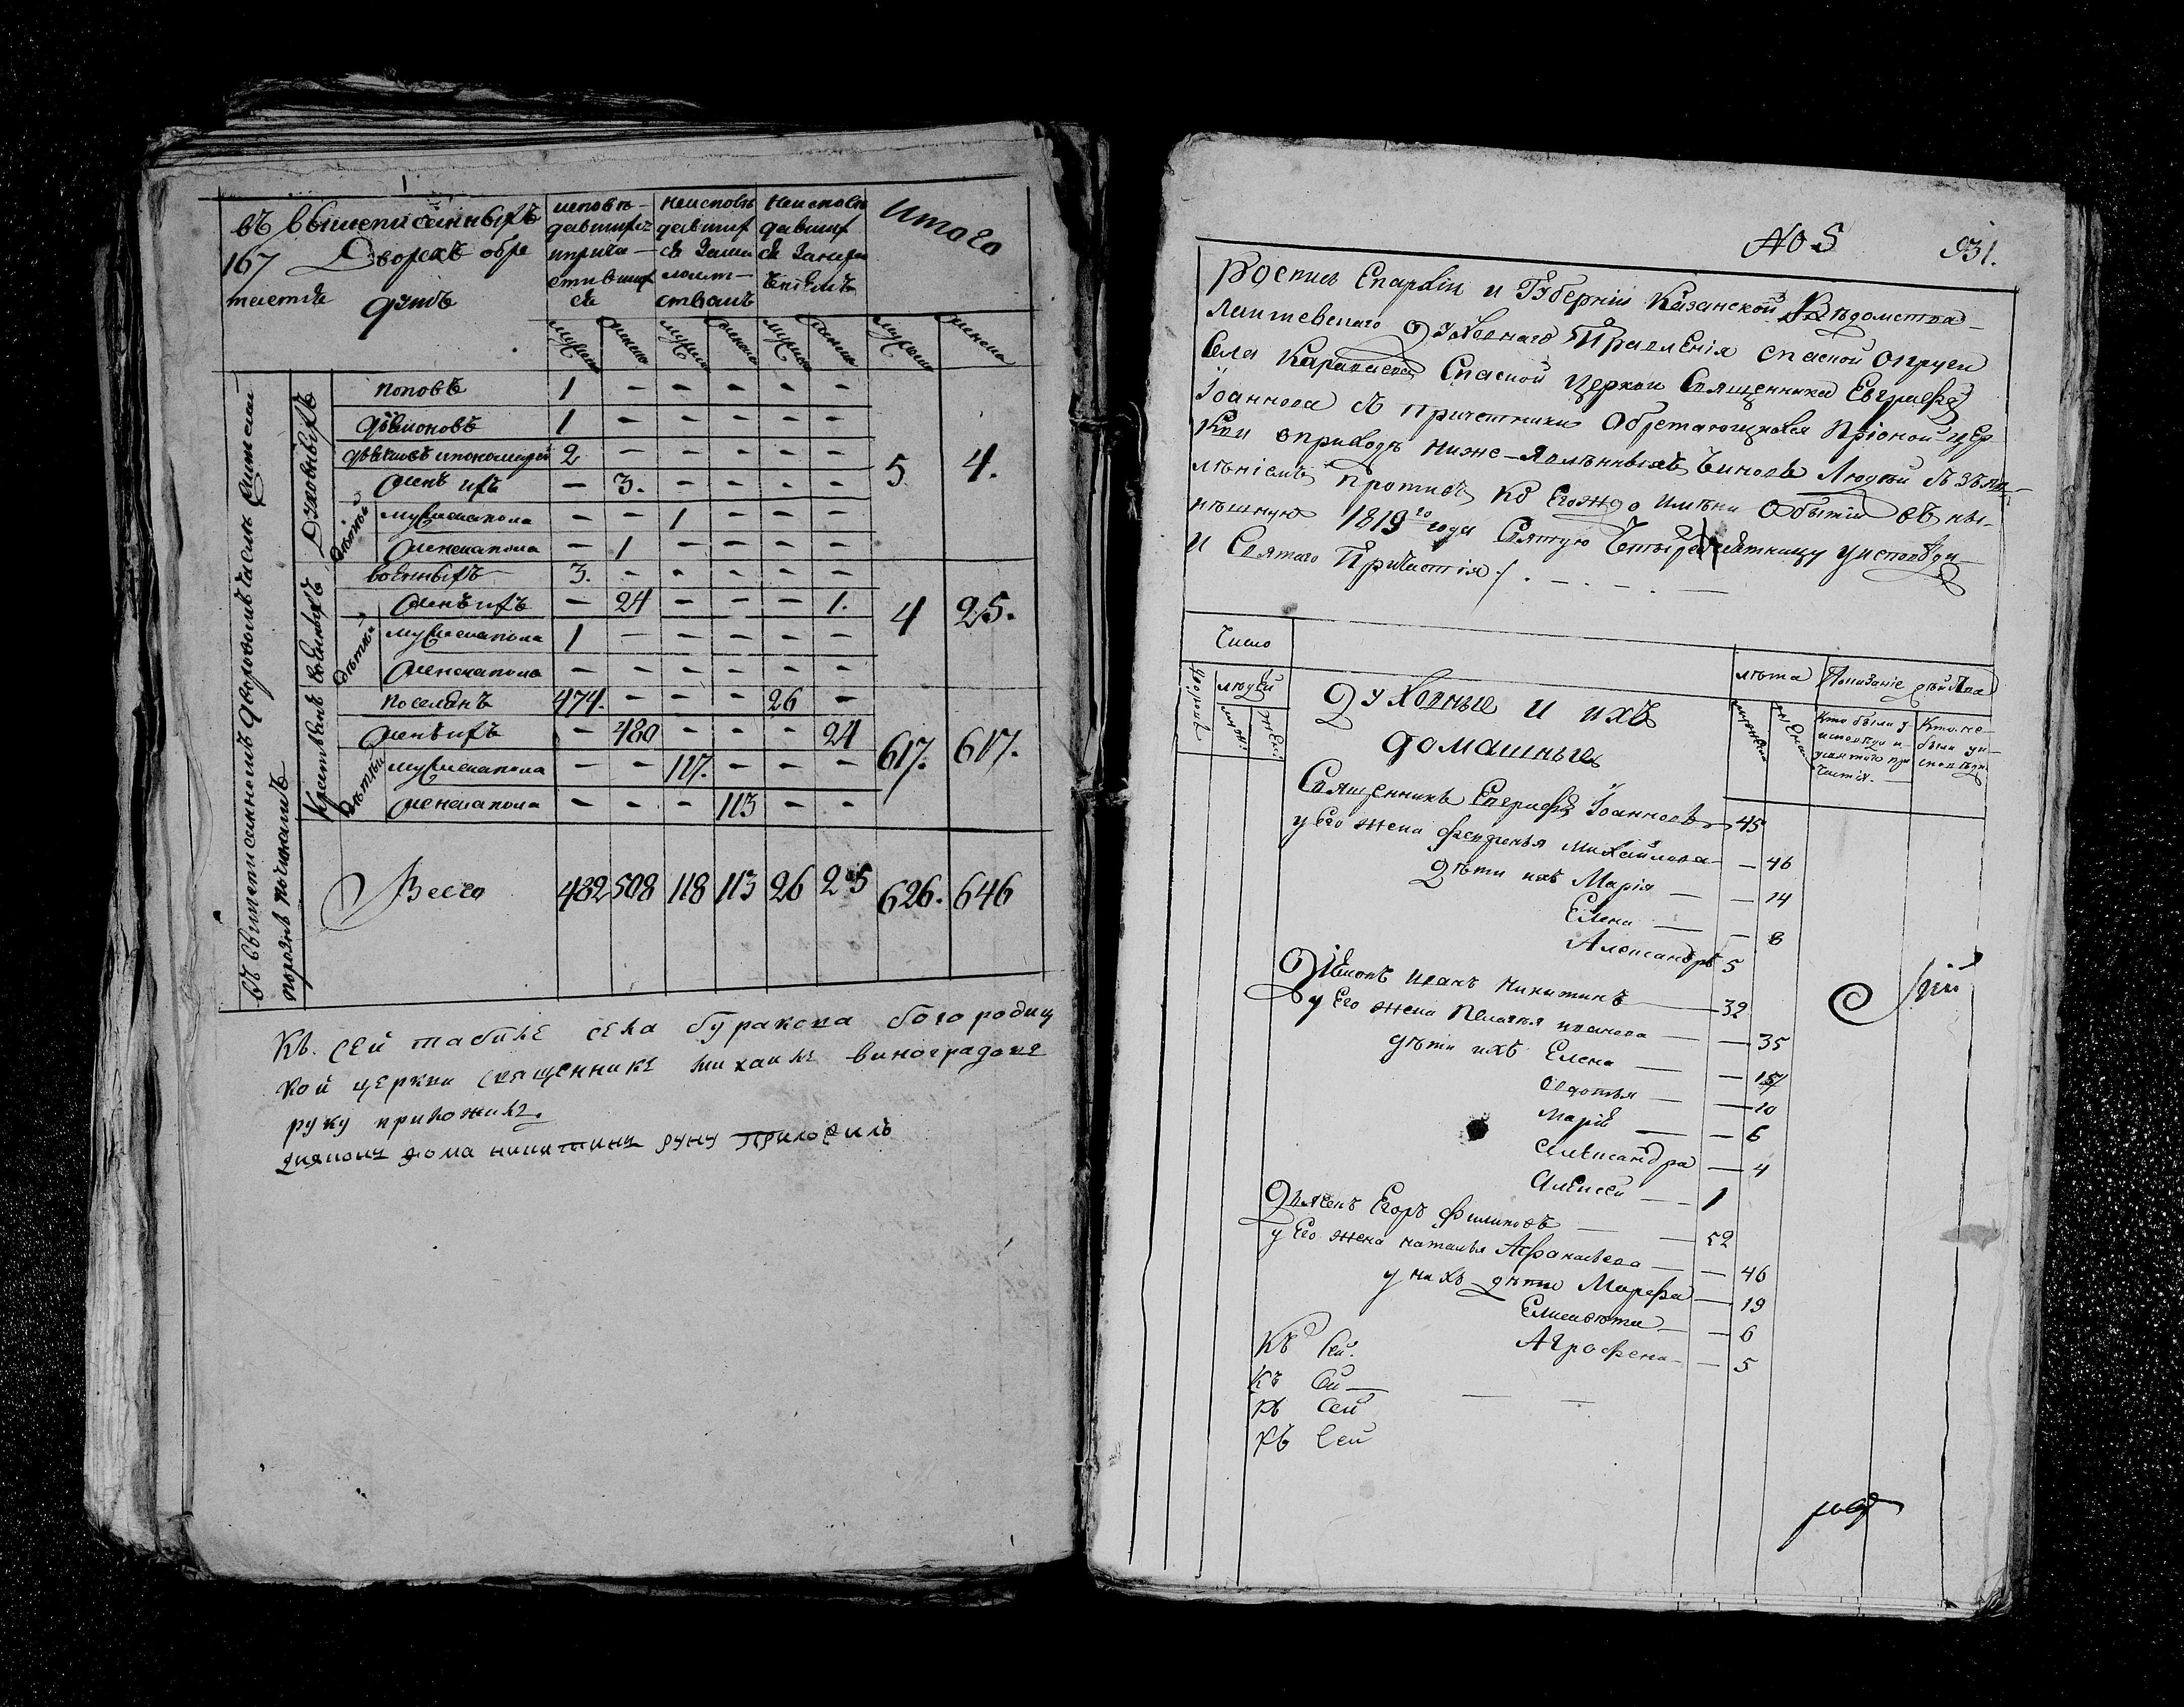 въ вышеписанныхъ
167 Дворахъ обре
тается
душъ
исповѣ-
давшихся
и прича-
стивших
ся
неисповѣ
давших
ся за ма
лолѣт-
ствомъ
неисповѣ
давших
ся за нерж
ѣніемъ
Итого
мужска
женска
мужска
женска
мужска
женска
мужска
женска
въ вышеписанномъ
порознь по чинамъ
Духовныхъ
поповъ 1 - - - - -
діяконовъ 1 - - - - -
дьячковъ и пономарей 2 - - - - -
женъ ихъ - 3. - - - - 5 4.
дѣтей
мужеска пола - - 1 - - -
женска пола - 1 - - - -
военныхъ
военныхъ 3. - - - - -
женъ ихъ - 24 - - - 1. 4 25.
дѣтей
мужеска пола 1 - - - - -
женска пола - - - - - -
Крестьянъ
поселянъ 474. - - - 26 -
женъ ихъ - 480 - - - 24 617. 617.
дѣтей
мужеска пола - - 117. - - -
женска пола - - - 113 - -
Всего 482 508 118 113 26 25 626. 646
Къ сей табгле села буракова богородиц
кой церкви священникъ михаилъ виноградовъ
руку приложилъ.
дияконъ фома никитинъ руку приложилъ
№ 5 931.
Роспись Епархіи и Губерніи Казанской Вѣдомства
Лаишевскаго Духовнаго Правленія спаской округи
Села Карапаева Спаской Церкви Священника Евграфа
Іоаннова съ причетники Обретающихся при оной цер
кви въ приходѣ ниже-явленныхъ Чиновъ Людей съ Изъяв
лѣніемъ противъ коегождо имѣни о бытіи въ ны-
нѣшнюю 1819го года Святую Четыредесятницу у исповѣди
и Святаго Причастія. - . -
Число
дворовъ
людей
муж:
жен:
Духовные и ихъ
домашные
лѣта
мужска
женска
Показаніе дѣйства
Кто были у
исповѣди и
святаго при
частія.
Кто не
были у и-
сповѣди
Священникъ Евграфъ Іоанновъ 45
у его жена Федосья Михайлова - 46
Дѣти ихъ Марія - 14
Елена - 8
Александръ 5
Діяконъ Иванъ Никитинъ 32
у Его жена Пелагья иванова - 35
дѣти ихъ Елена - 15
Авдотья - 10
Марія - 6
Александра - 4
Алексѣй 1
Дьячекъ Егоръ Филиповъ 52
у Его жена наталья Афанасьева - 46
у нихъ дѣти Марфа - 19
Елисавета - 6
Агрофена - 5
Къ Сей.
Къ Сей
Къ Сей
Къ Сей